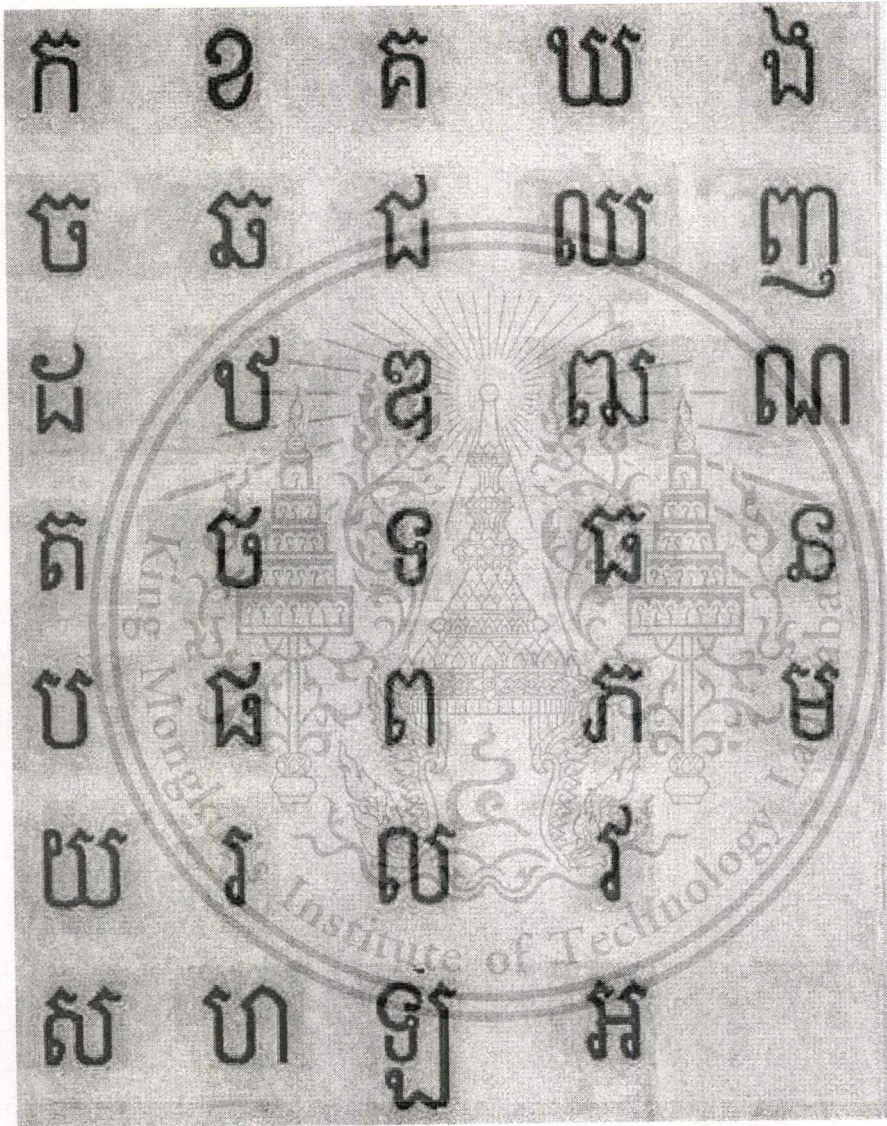 ក ខ គ ឃ ង
ច ឆ ជ ឈ ញ
ដ ឋ ឌ ឍ ណ
ត ថ ទ ធ ន
ប ផ ព ភ ម
យ រ ល វ
ស ហ ឡ អ
King Mongkut's Institute of Technology Ladkrabang